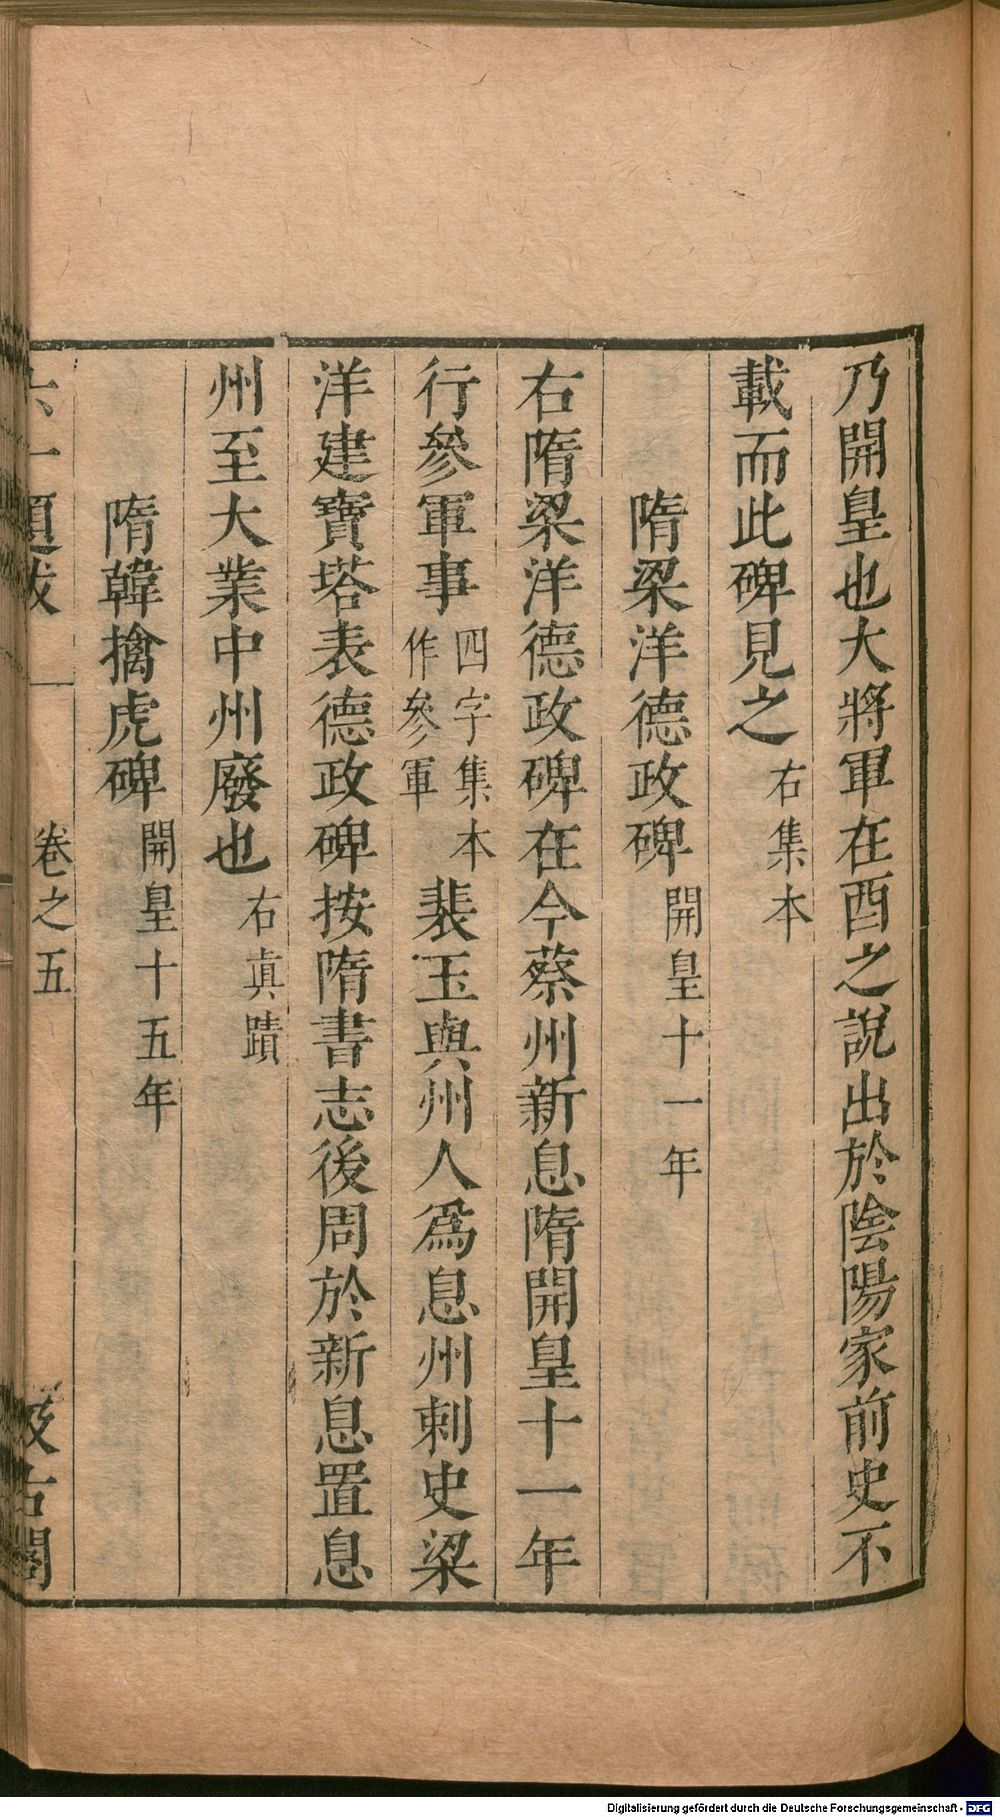 乃開皇也大將軍在酉之說出於陰陽家前史不
載而此碑見之右集本
隋梁洋德政碑開皇十一年
右隋梁洋德政碑在今蔡州新息隋開皇十一年
行參軍事四字集本作參軍裴玉與州人爲息州刺史梁
洋建寶塔表德政碑按隋書志後周於新息置息
州至大業中州廢也右眞蹟
隋韓擒虎碑開皇十五年
六一題跋 卷之五 汲古閣
Digitalisierung gefördert durch die Deutsche Forschungsgemeinschaft - DFG